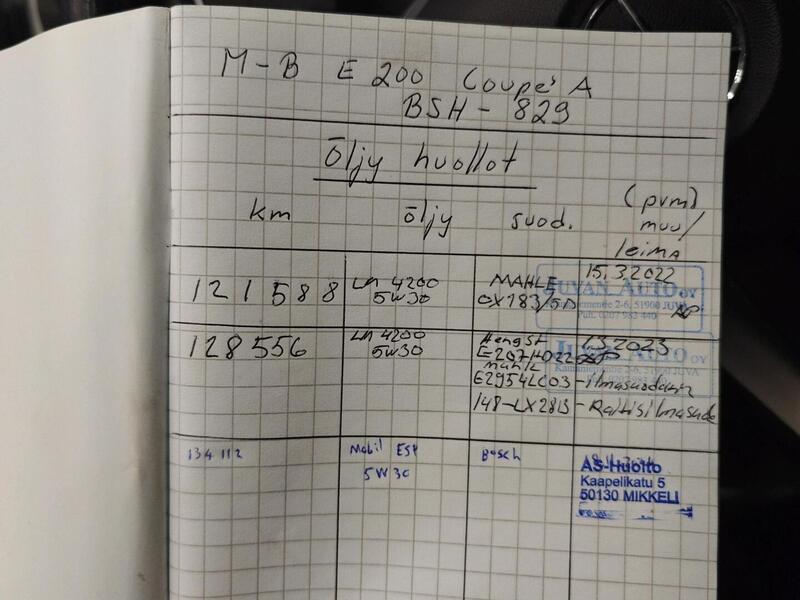 M-B E 200 Coupé A
BSH - 829
Öljy huollot
km öljy suod. (pvm)
muu/
leima
121588 LM 4200
5W30 MAHLE
OX183/5D 15.3.2022
JUVAN AUTO OY
2-6, 51900 JUVA
Puh. 0207 982 440
128556 LM 4200
5W30 Hengst
E207H02
Mahle
E2954LC03 - ilmasuodatin
148-LX2813 - Raitisilmasuod 1.3.2023
AUTO OY
2-6, 51900 JUVA
134 112 Mobil ESP
5W30 Bosch
AS-Huolto
Kaapelikatu 5
50130 MIKKELI